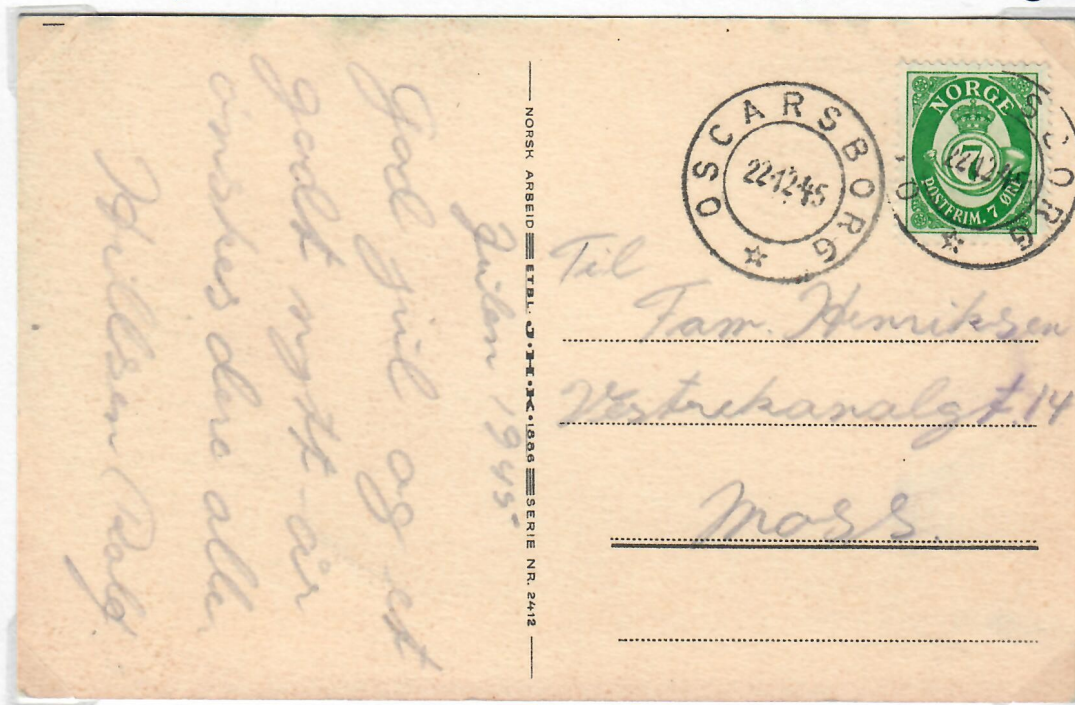 Julen 1945
God jul og et
godt nytt år
ønskes dere alle
NORSK ARBEID ETBL. J·H·K·1886 SERIE NR. 2412
OSCARSBORG
22·12·45
NORGE
7
POSTFRIM. 7 ØRE
Til
Fam. Henriksen
Vestrekanalgt. 14
Moss.